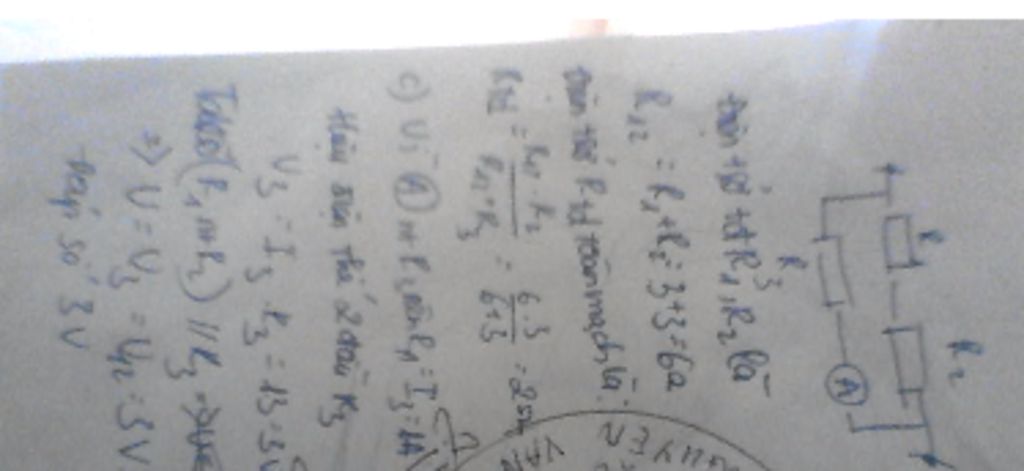 R
R2
R3
A
Điện trở tđ R1, R2 là
R12 = R1 + R2 = 3 + 3 = 6Ω
Điện trở Rtđ toàn mạch là:
Rtđ = R12 . R3 / R12 + R3 = 6.3 / 6+3 = 2Ω
c) Vì A nt R3 nên = I3 = 1A
Hiệu điện thế 2 đầu R3
U3 = I3 . R3 = 1.3 = 3V
Ta có (R1 nt R2) // R3
=> U = U3 = U12 = 3V
Đáp số 3V
VĂN